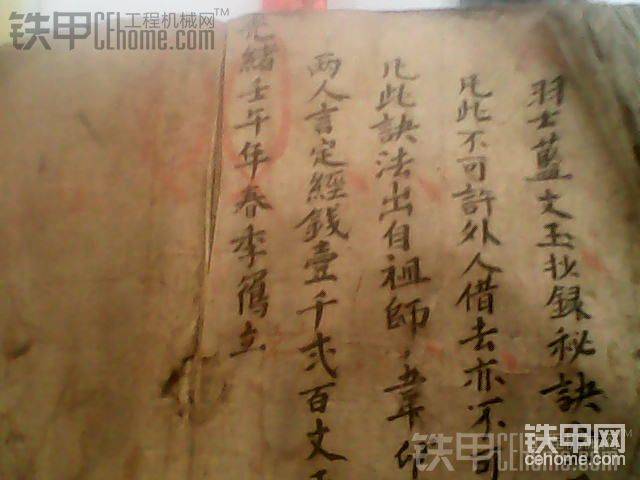 羽士藍文玉抄録秘訣
凡此不可許外人借去亦不可
凡此訣法出自祖師
两人言定經錢壹千弍百文
光緒壬午年春李
立
铁甲
工程机械网
CEhome.com
铁甲CEhome.com
铁甲网
cehome.com